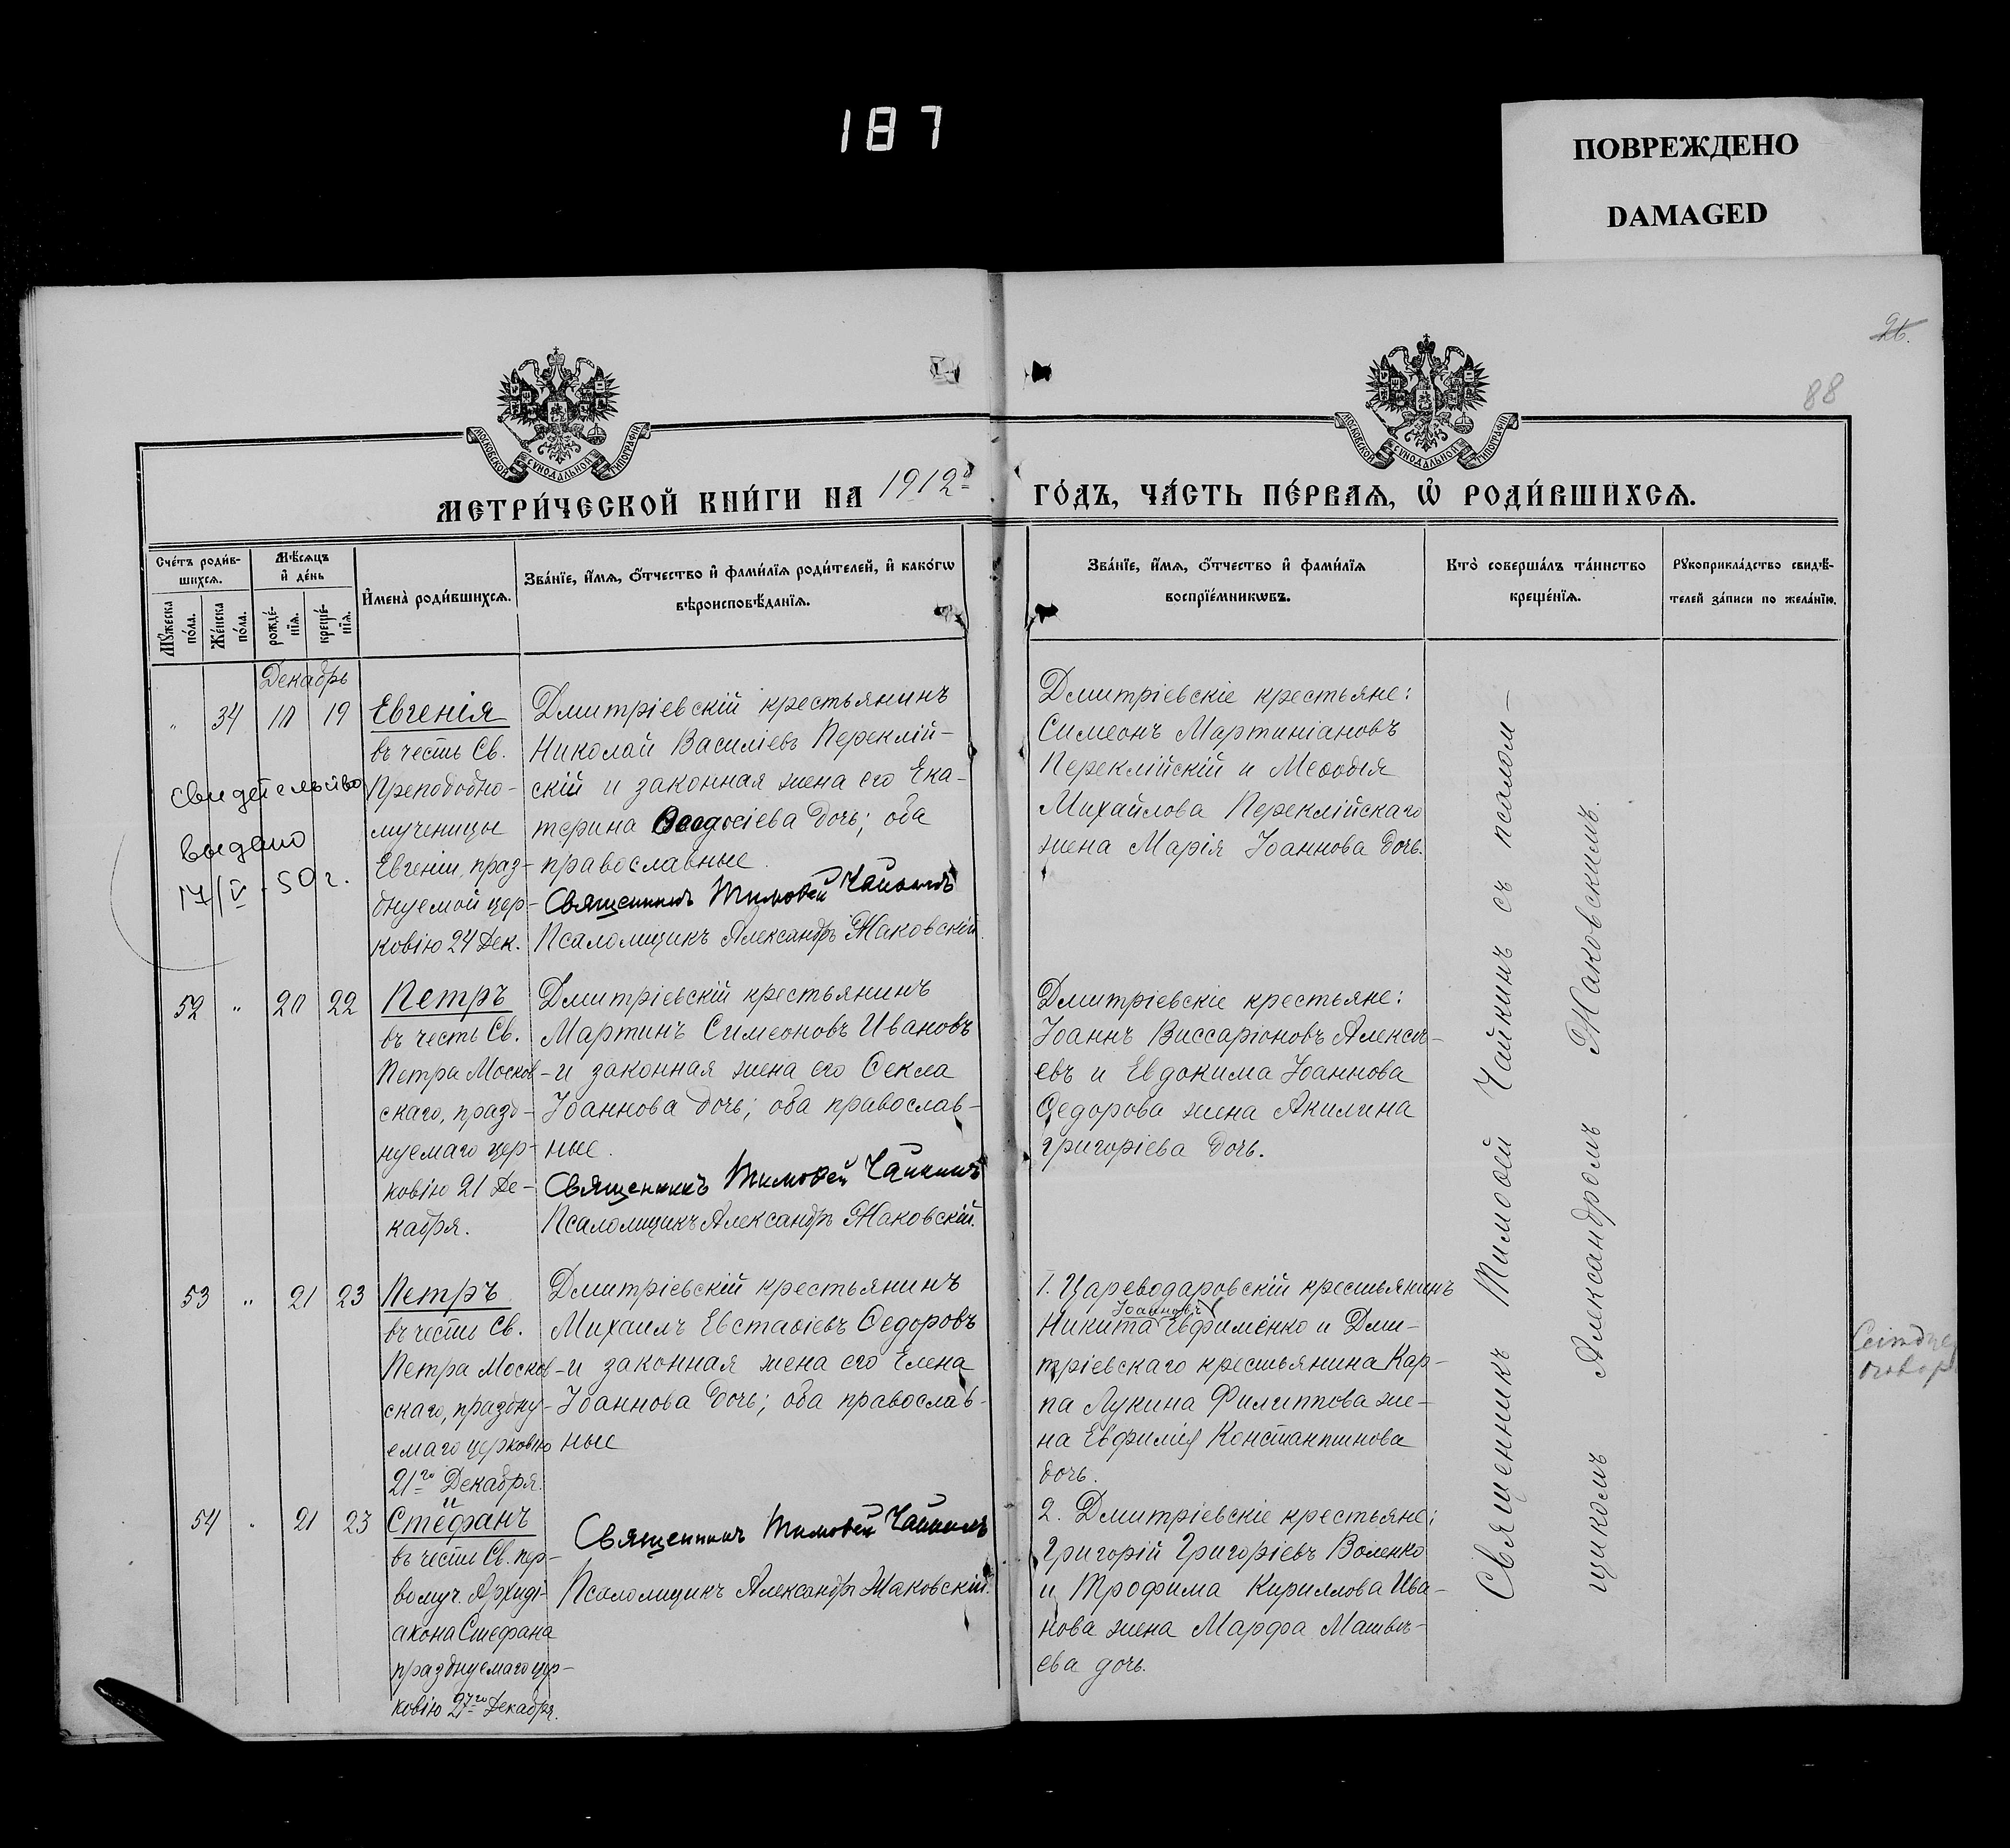 187
ПОВРЕЖДЕНО
DAMAGED
26.
88
МОСКОВСКОЙ СУНОДАЛЬНОЙ ТИПОГРАФІИ
МОСКОВСКОЙ СУНОДАЛЬНОЙ ТИПОГРАФІИ
МЕТРИ́ЧЕСКОЙ КНИ́ГИ НА 1912й
ГО́ДЪ, ЧА́СТЬ ПЕ́РВАѦ, Ѡ҆ РОДИ́ВШИХСѦ.
Сче́тъ роди́в-
шихсѧ.
Мѣ́сѧцъ
и҆ де́нь
Мꙋ́жеска по́ла.
Же́нска по́ла.
рожде́-
нїѧ.
креще́-
нїѧ.
И҆мена̀ роди́вшихсѧ.
Зва́нїе, и҆́мѧ, ѻ҆́тчество и҆ фами́лїѧ роди́телей, и҆ како́гѡ
вѣроисповѣ́данїѧ.
Зва́нїе, и҆́мѧ, ѻ҆́тчество и҆ фами́лїѧ
воспрїе́мникѡвъ.
Кто̀ соверша́лъ та́инство
креще́нїѧ.
Рꙋкоприкла́дство свидѣ́-
телей за́писи по жела́нїю.
Декабрь
" 34 18 19
Евгенія
въ честь Св.
Преподобно-
мученицы
Евгеніи, праз-
днуемой цер-
ковію 24 Дек.
свидетельство
выдано
17/V - 50 г.
Дмитріевскій крестьянинъ
Николай Василіевъ Переклій-
скій и законная жена его Ека-
терина Ѳеодосіева дочь; оба
православные.
Священникъ Тимоѳей Чайкинъ
Псаломщикъ Александръ Жаковскій.
Дмитріевскіе крестьяне:
Симеонъ Мартиніановъ
Переклійскій и Меѳодія
Михайлова Переклійскаго
жена Марія Іоаннова дочь.
52 " 20 22
Петръ
въ честь Св.
Петра Москов-
скаго, празд-
нуемаго цер-
ковію 21 Де-
кабря.
Дмитріевскій крестьянинъ
Мартинъ Симеоновъ Ивановъ
и законная жена его Ѳекла
Іоаннова дочь; оба православ-
ные.
Священникъ Тимоѳей Чайкинъ
Псаломщикъ Александръ Жаковскій.
Дмитріевскіе крестьяне:
Іоаннъ Виссаріоновъ Алексѣ-
евъ и Евдокима Іоаннова
Ѳедорова жена Акилина
Григоріева дочь.
53 " 21 23
Петръ
въ честь Св.
Петра Москов-
скаго, праздну-
емаго церковію
21го Декабря.
и
Дмитріевскій крестьянинъ
Михаилъ Евстаѳіевъ Ѳедоровъ
и законная жена его Елена
Іоаннова дочь; оба православ-
ные
1. Цареводаровскій крестьянинъ
Іоанновъ
Никита Евфименко и Дми-
тріевскаго крестьянина Кар-
па Лукина Филиппова же-
на Евфимія Константинова
дочь.
54 " 21 23
Стефанъ
въ честь Св. пер-
вомуч. Архиді-
акона Стефана
празднуемаго цер-
ковію 27го Декабря.
Священникъ Тимоѳей Чайкинъ
Псаломщикъ Александръ Жаковскій.
2. Дмитріевскіе крестьяне:
Григорій Григоріевъ Воленко
и Трофима Кириллова Ива-
нова жена Марфа Матвѣ-
ева дочь.
Священникъ Тимоѳей Чайкинъ съ псалом-
щикомъ Александромъ Жаковскимъ.